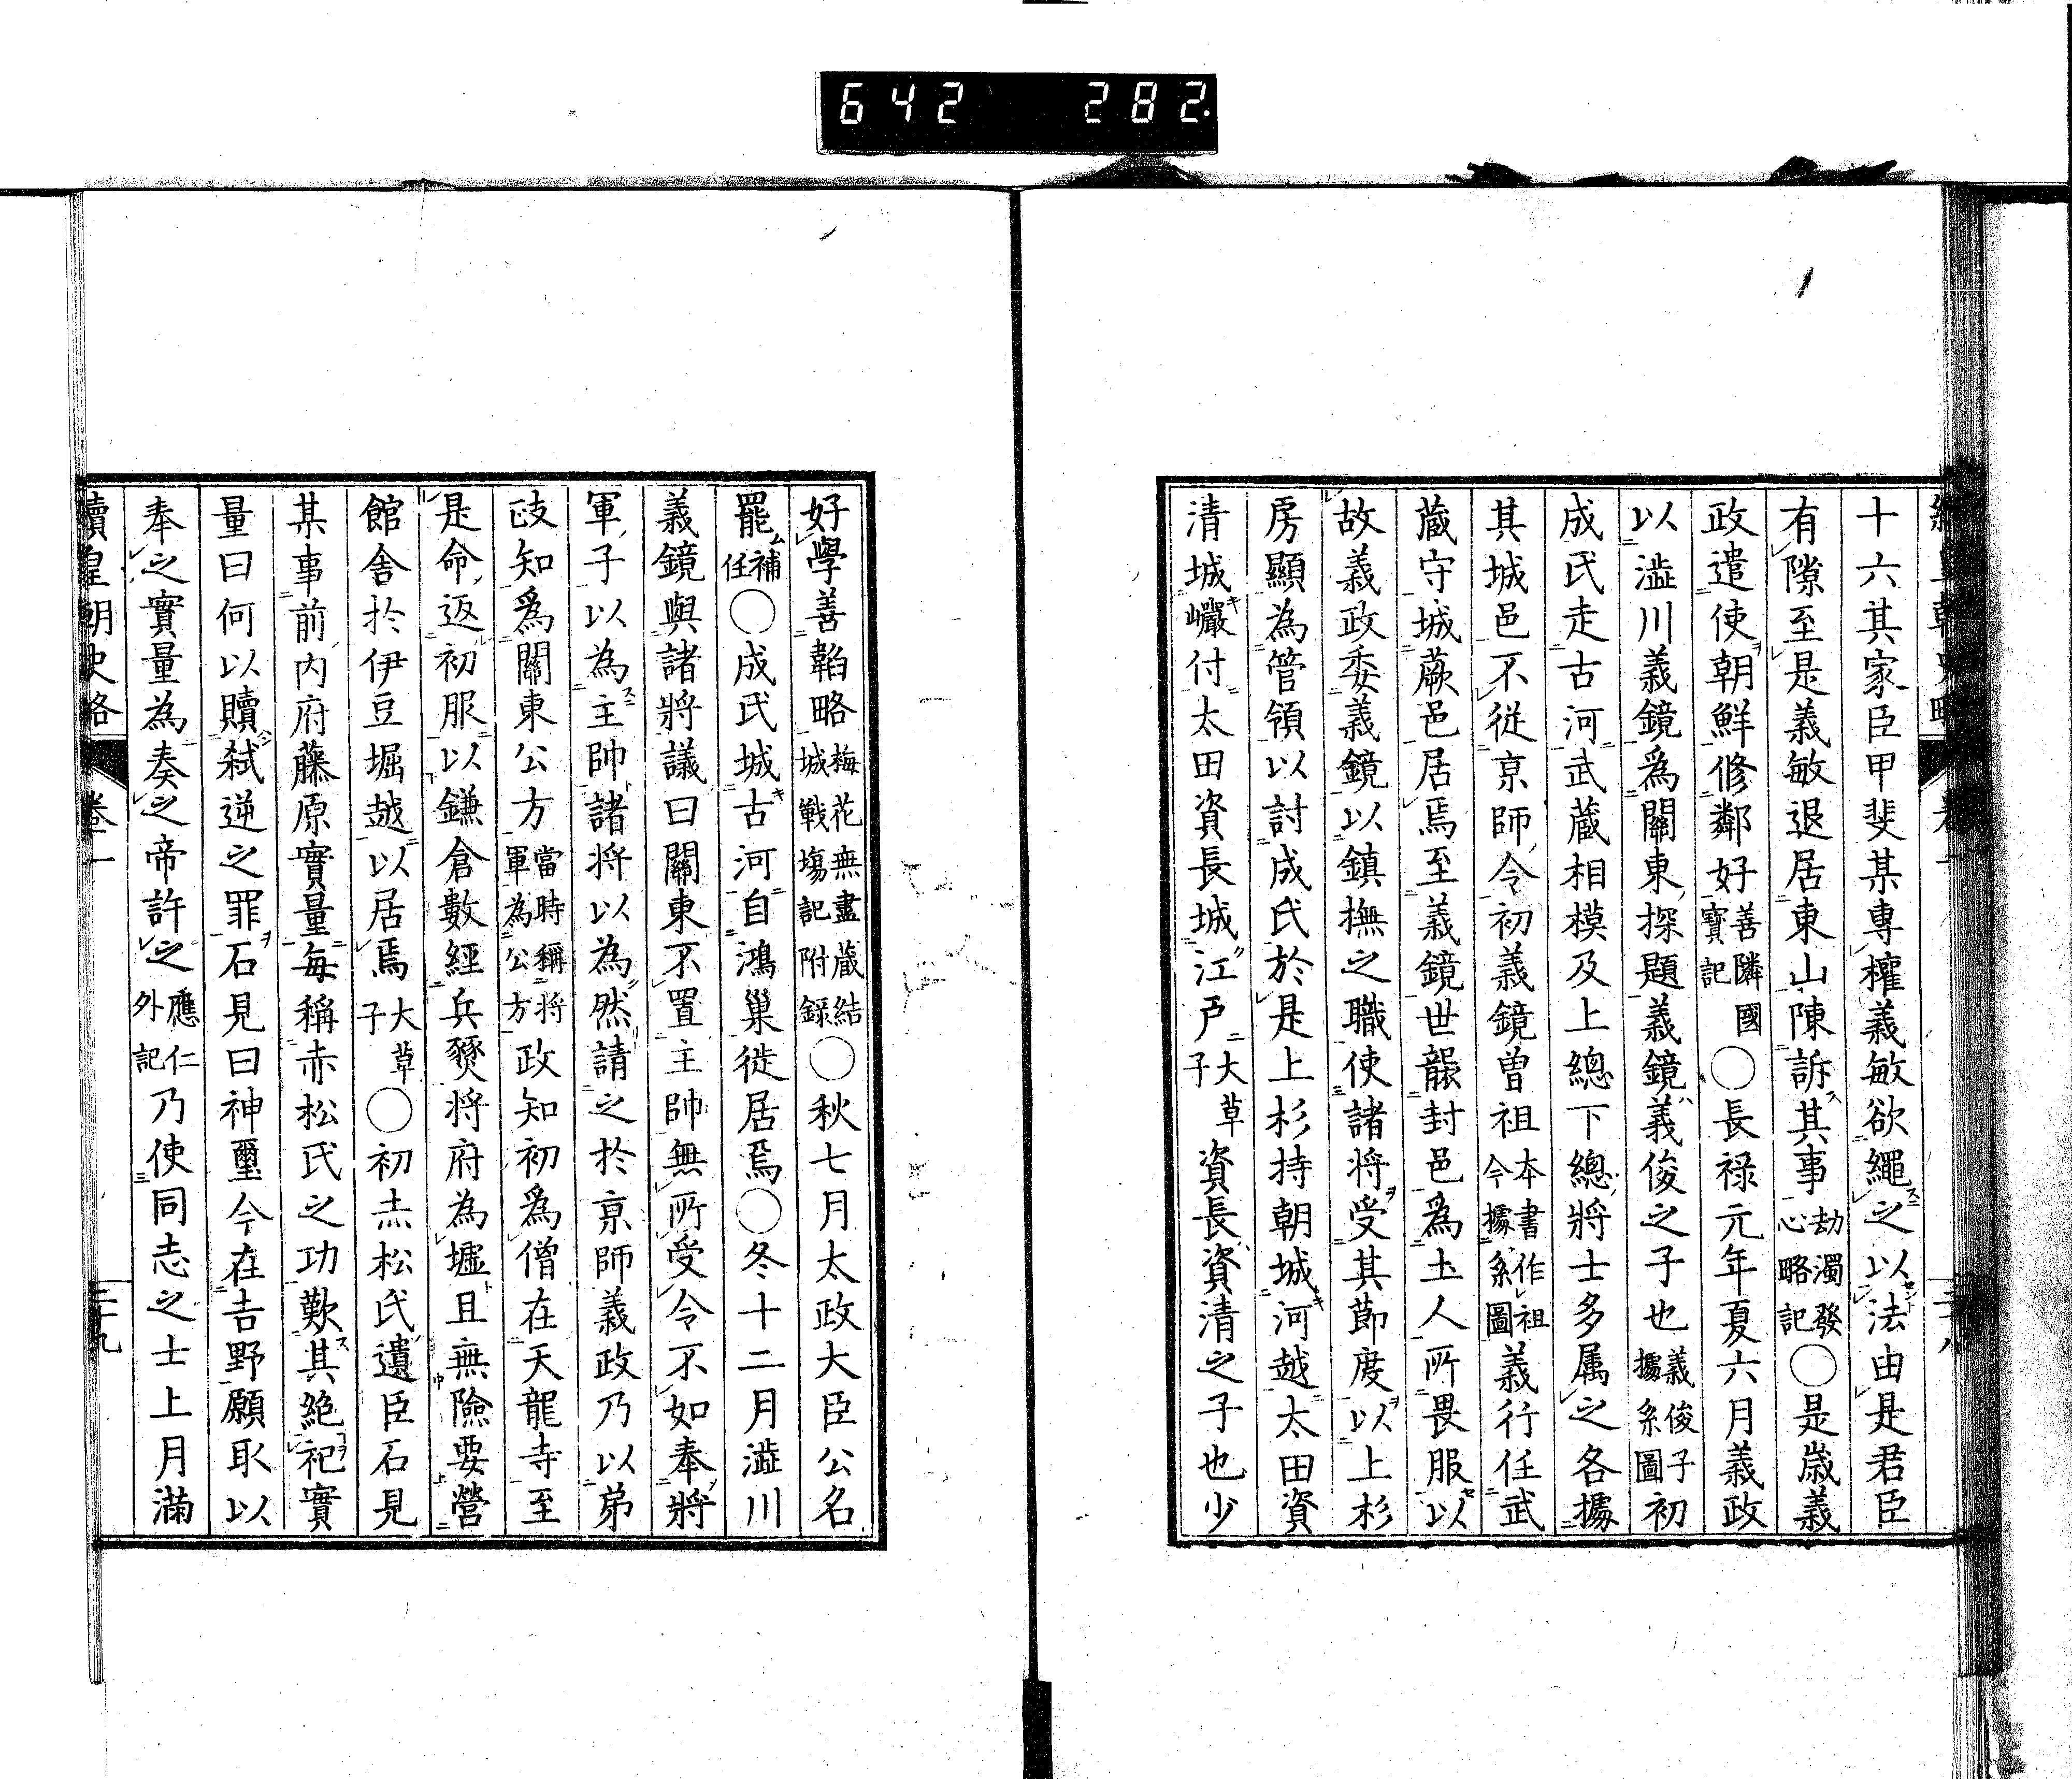 642 282.
十六其家臣甲斐某專權義敏欲繩之以法由是君臣
有隙至是義敏退居東山陳訴其事劫濁發心略記○是歲義
政遣使朝鮮修鄰好善隣國寶記○長祿元年夏六月義政
以澁川義鏡爲關東探題義鏡義俊之子也義俊子據系圖初
成氏走古河武藏相模及上總下總將士多属之各據
其城邑不從京師令初義鏡曽祖本書作祖今據系圖義行任武
藏守城蕨邑居焉至義鏡世襲封邑爲土人所畏服以
故義政委義鏡以鎮撫之職使諸將受其節度以上杉
房顯為管領以討成氏於是上杉持朝城河越太田資
清城巗付太田資長城江戸大草子資長資清之子也少
好學善韜略梅花無盡藏結城戰塲記附錄○秋七月太政大臣公名
罷補任○成氏城古河自鴻巢徙居焉○冬十二月澁川
義鏡與諸將議曰關東不置主帥無所受令不如奉將
軍子以為主帥諸將以為然請之於京師義政乃以弟
政知爲關東公方當時稱將軍為公方政知初爲僧在天龍寺至
是命返初服以鎌倉數經兵燹將府為墟且無險要營
館舍於伊豆堀越以居焉大草子○初赤松氏遺臣石見
某事前内府藤原實量每稱赤松氏之功歎其絶祀實
量曰何以贖弑逆之罪石見曰神璽今在吉野願取以
奉之實量為奏之帝許之應仁外記乃使同志之士上月滿
續皇朝史略 卷一 二十九